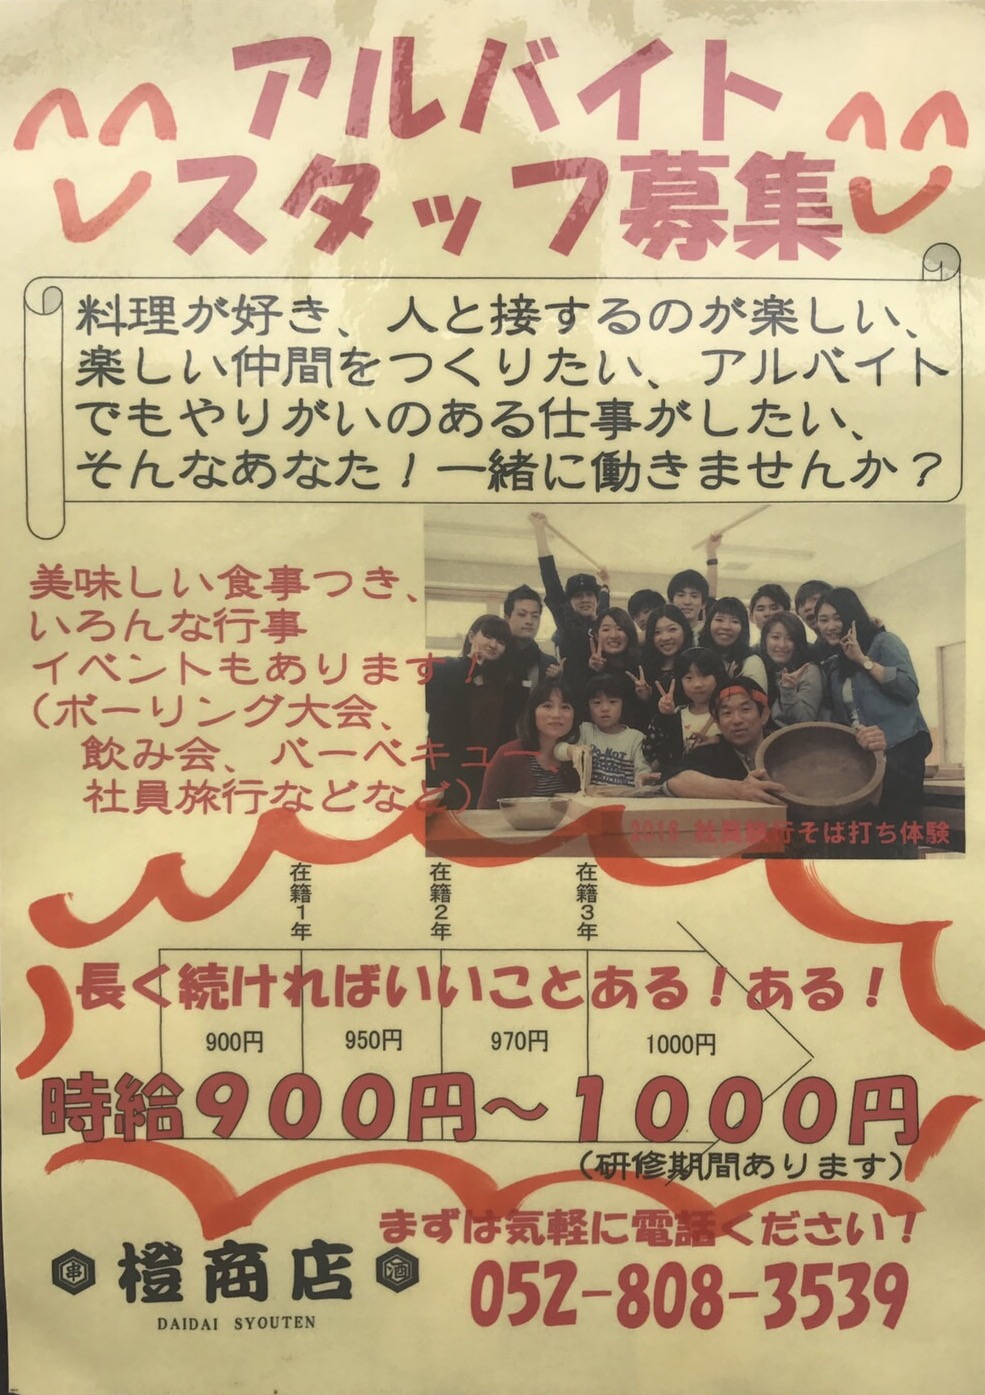 アルバイト
スタッフ募集
料理が好き、人と接するのが楽しい、
楽しい仲間をつくりたい、アルバイト
でもやりがいのある仕事がしたい、
そんなあなた！一緒に働きませんか？
美味しい食事つき、
いろんな行事
イベントもあります！
（ボーリング大会、
飲み会、バーベキュー
社員旅行などなど）
社員旅行そば打ち体験
在籍1年
在籍2年
在籍3年
長く続ければいいことある！ある！
900円 950円 970円 1000円
時給900円～1000円
（研修期間あります）
まずは気軽に電話ください！
串 橙商店 酒
DAIDAI SYOUTEN
052-808-3539